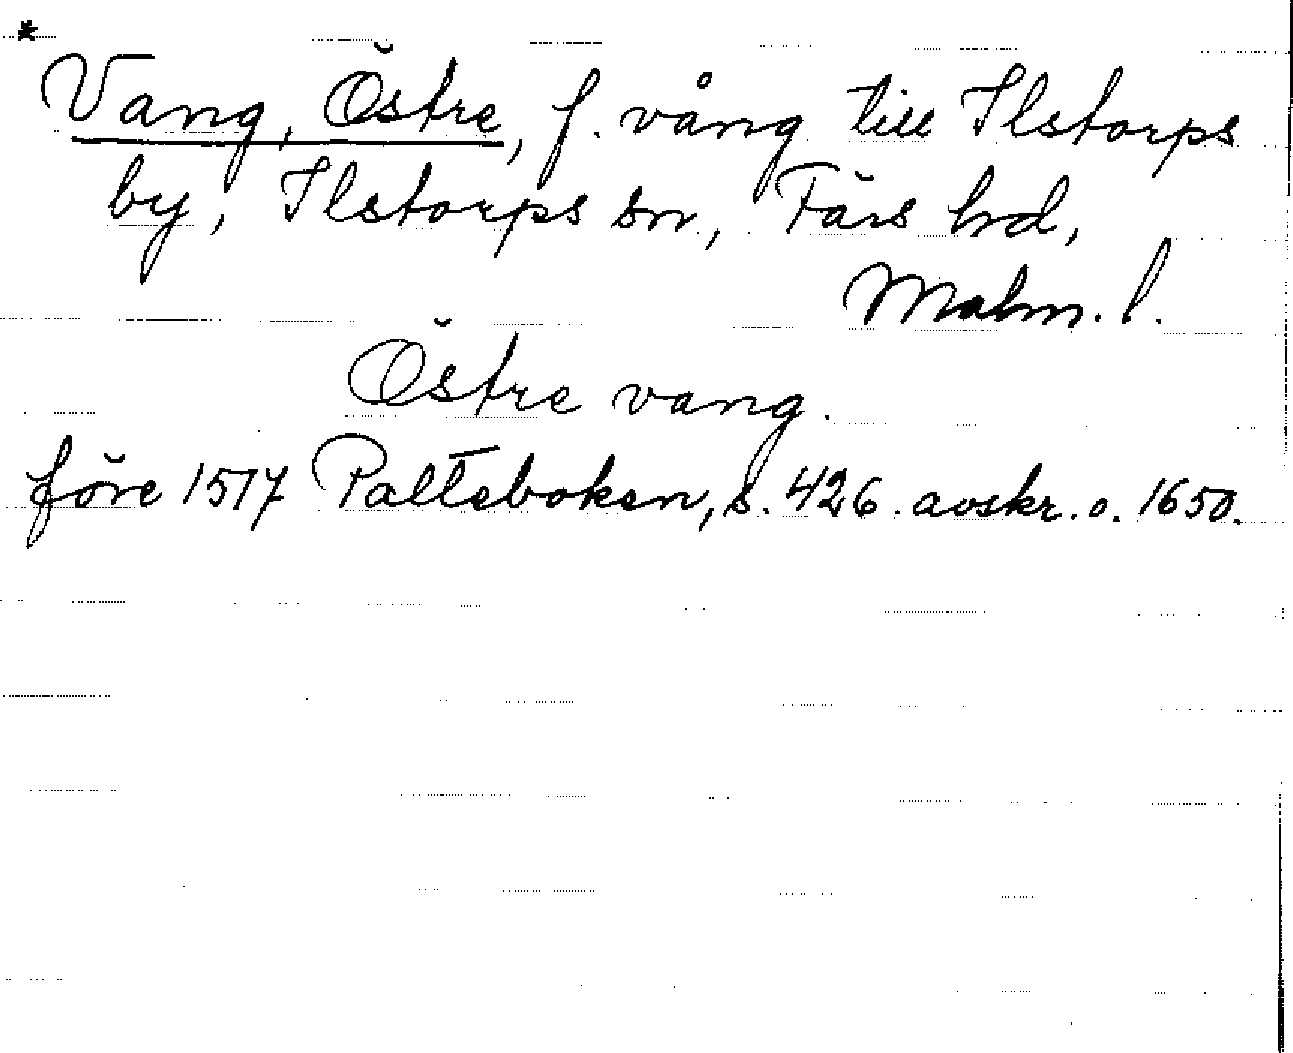 *
Vang, Östre, f. vång till Ilstorps
by, Ilstorps sn, Färs hd,
Malm. l.
Östre vang.
före 1517 Palteboken, s. 426. avskr. o. 1650.